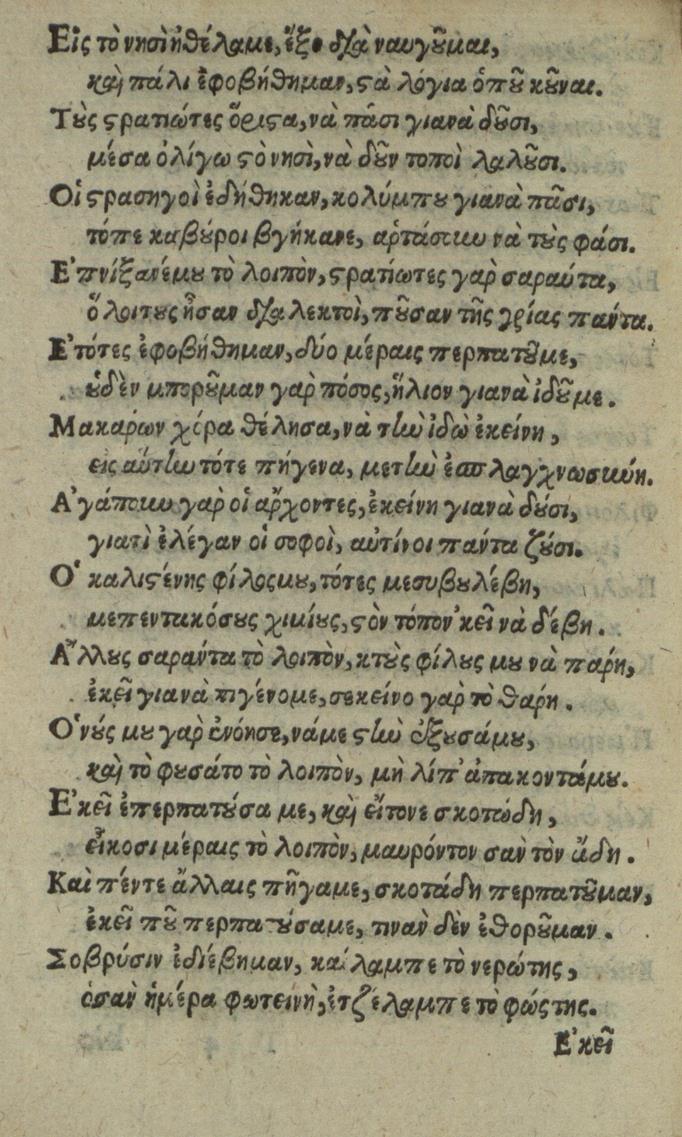 Εἰς τὸ νησὶ ἠθέλαμε, ἔξω διὰ ναυγοῦμαι,
καὶ πάλι ἐφοβήθημαν, στὰ λόγια ὁποῦ κοῦναι.
Τοὺς στρατιώτες ὅριστα, νὰ πᾶσι γιανὰ δοῦσι,
μέσα ὀλίγω στὸ νησὶ, νὰ δοῦν τοποὶ λαλοῦσι.
Οἱ στρασηγοὶ ἐδήθηκαν, κολύμπου γιανὰ πᾶσι,
τόπε καβύροι βγήκανε, ἀρτάσικου νὰ τοὺς φάσι.
Ἐπνίξανέμου τὸ λοιπὸν, στρατιωτες γὰρ σαραύτα,
ὅλοιτους ἦσαν διαλεκτοὶ, ποῦσαν τῆς χρίας παντα.
Ἐτότες ἐφοβήθημαν, δύο μέραις περπατοῦμε,
οὐδὲν μποροῦμαν γὰρ πόσος, ἥλιον γιανὰ ἰδοῦμε.
Μακαρων χόρα θέλησα, νὰ τὴν ἰδὼ ἐκείνη,
εἰς αὔτην τότε πήγενα, μετὴν ἐσπλαγχνωσκύη.
Ἀγάποιυ γὰρ οἱ ἄρχοντες, ἐκείνη γιανὰ δούσι,
γιατὶ ἐλέγαν οἱ σοφοὶ, αὐτίνοι παντα ζούσι.
Ὁ καλιστένης φίλοςμου, τότες μεσυβουλέβη,
μεπεντακόσους χιμίους, στὸν τόπον᾿ κεῖ νὰ δέβη.
Ἄλλους σαραντα τὸ λοιπὸν, κτοὺς φίλους μου νὰ παρη,
ἐκεῖ γιανὰ πιγένομε, σεκείνο γὰρ τὸ θαρη.
Ὁ νούς μου γὰρ ἐνόησε, νάμε στὴν ἐξουσάμου,
καὶ τὸ φουσάτο τὸ λοιπὸν, μὴ λίπ᾿ ἀπακοντάμου.
Ἐκεῖ ἐπερπατούσα με, καὶ εἴτονε σκοτώδη,
εἴκοσι μέραις τὸ λοιπὸν, μαυρόντον σαν τὸν ἅδη.
Καὶ πέντε ἄλλαις πῆγαμε, σκοτάδη περπατοῦμαν,
ἐκεῖ ποῦ περπατούσαμε, τιναν δὲν ἐθοροῦμαν.
Σοβρύσιν ἐδιέβημαν, καίλαμπε τὸ νερώτης,
ὁσαν ἡμέρα φωτεινὴ, ἐτζέλαμπε τὸ φώςτης.
Ἐκεῖ